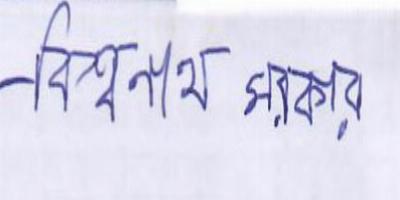 বিশ্বনাথ সরকার